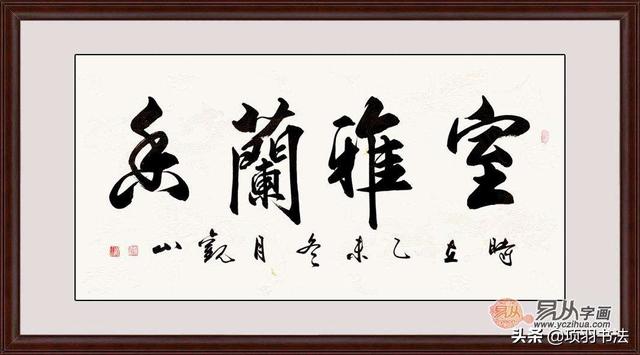 室雅蘭香
時在乙未冬月觀山
易从 易从字画
www.yczihua.com
头条 @项羽书法